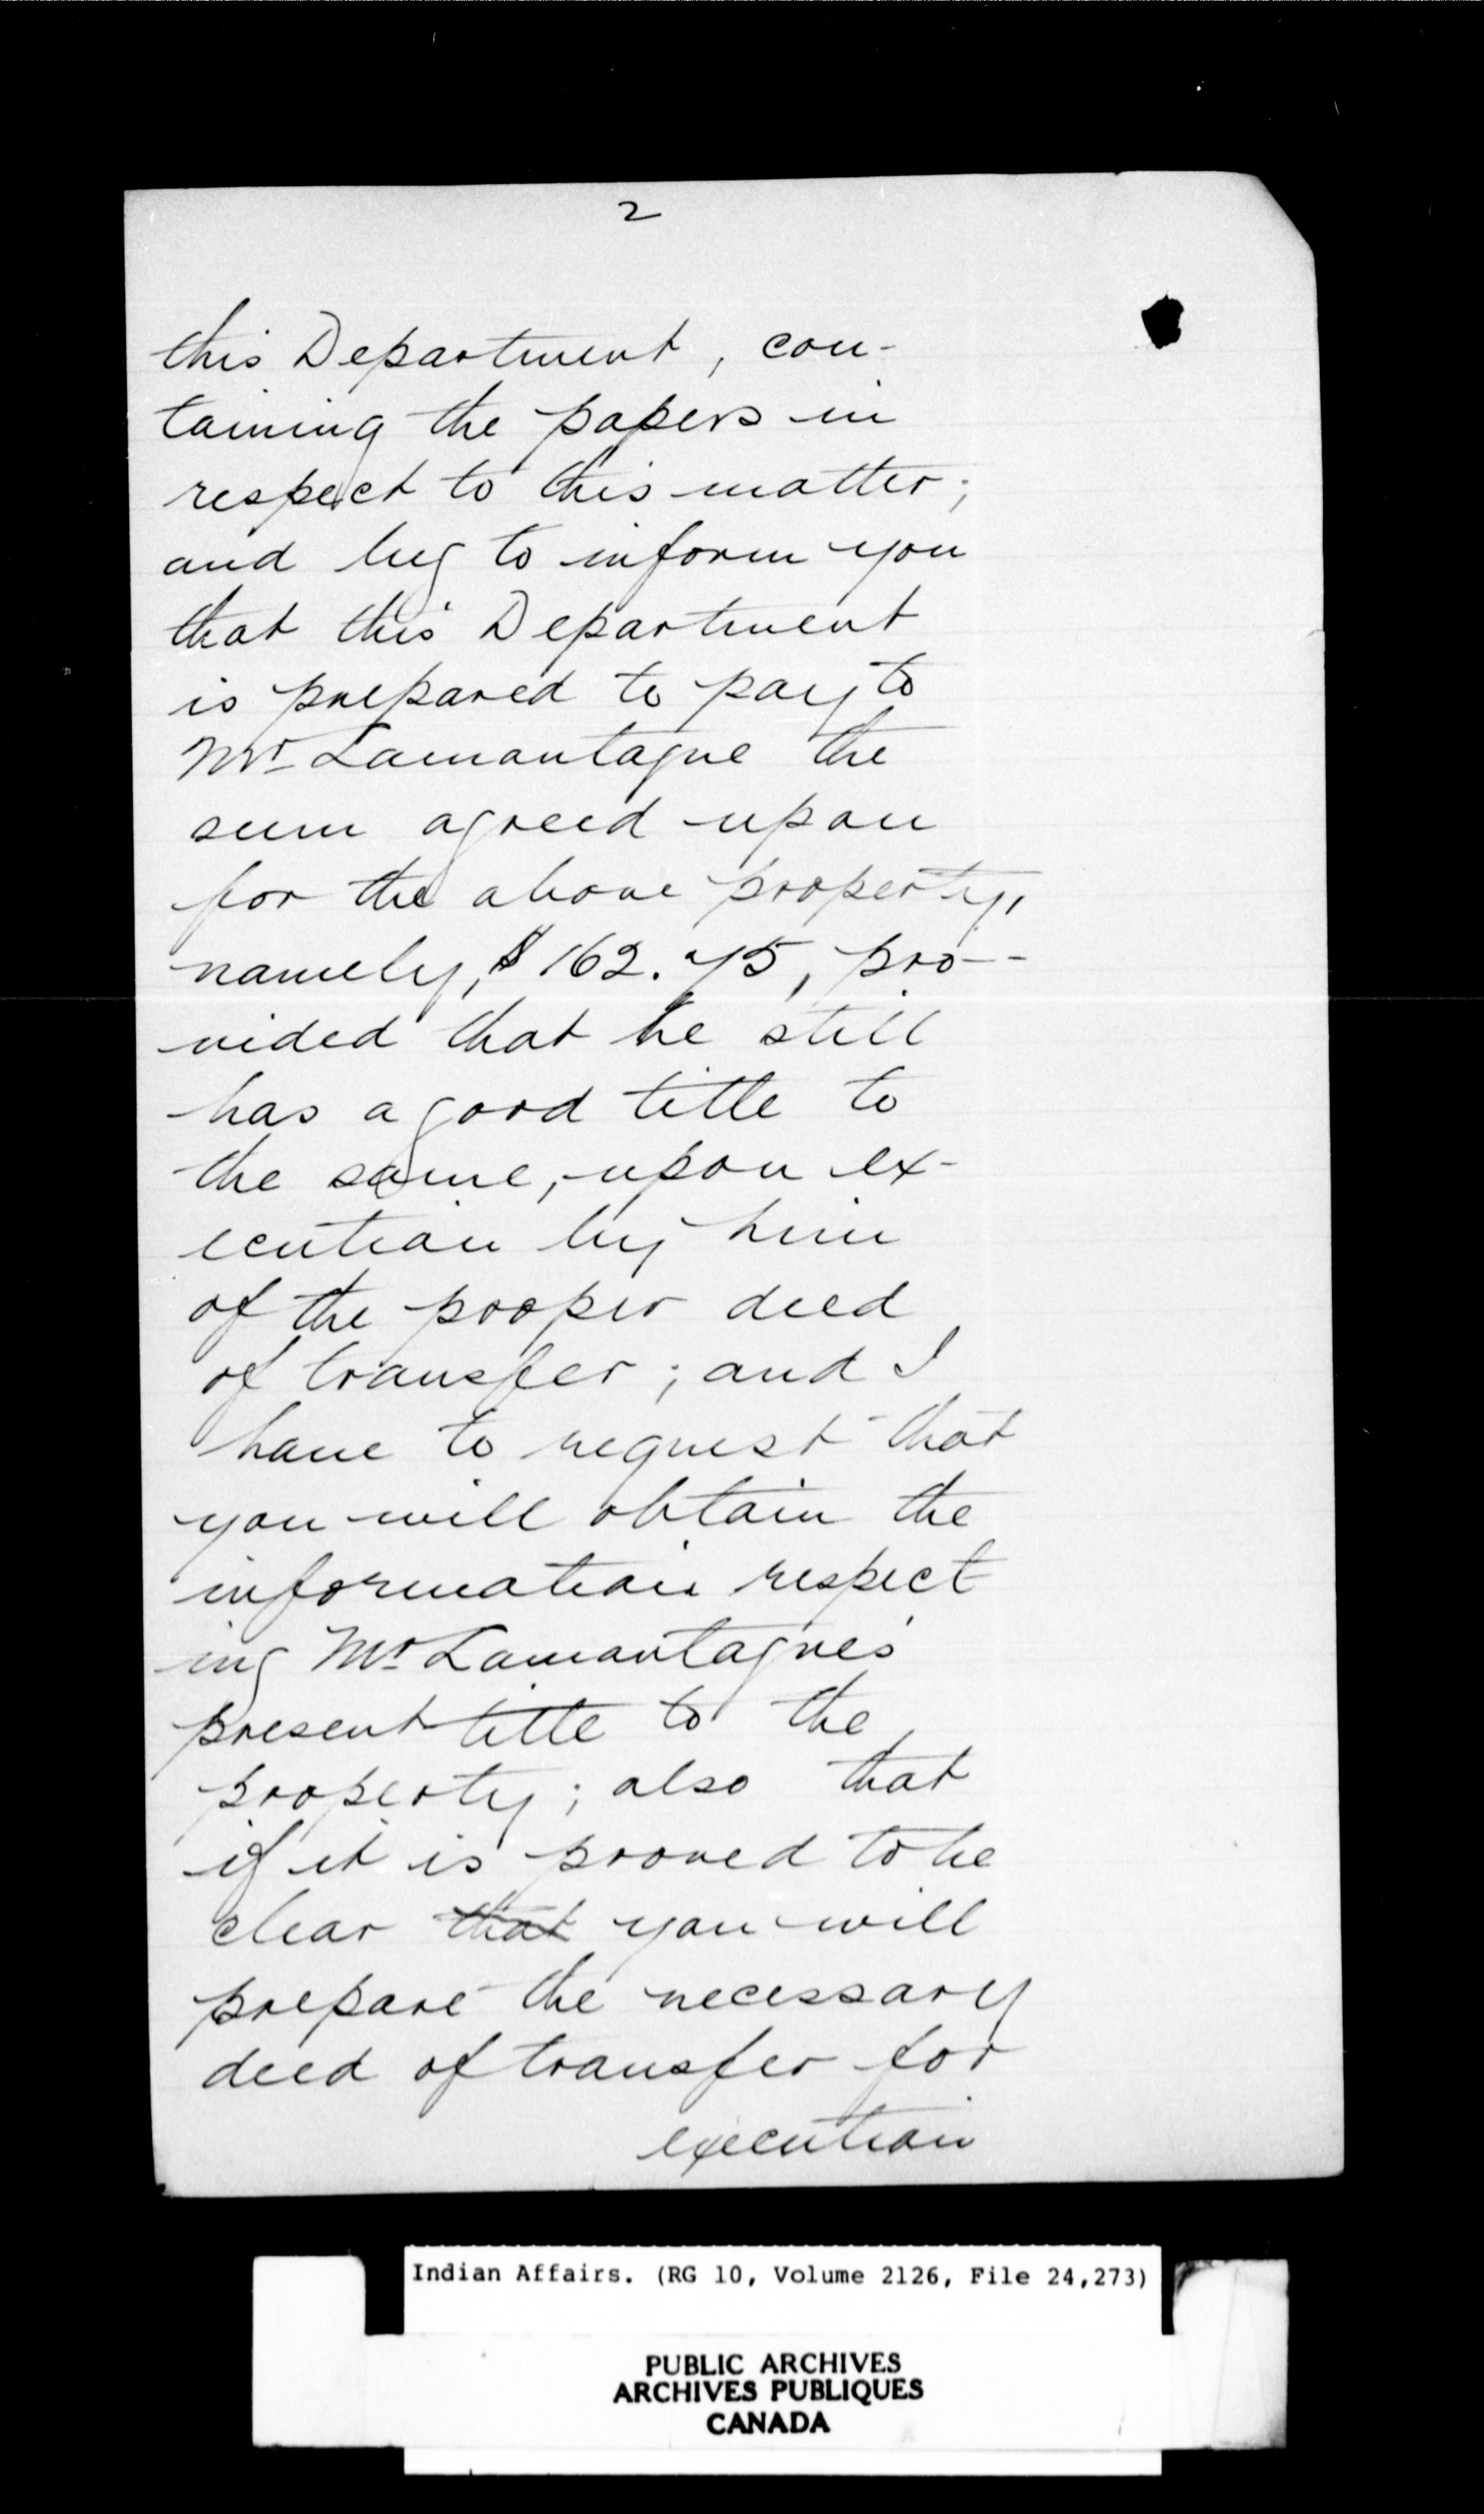 2
this Department, con-
taining the papers in
respect to this matter;
and beg to inform you
that this Department
is prepared to pay to
Mr Lamontagne the
sum agreed upon
for the above property,
namely, $162.75, pro-
vided that he still
has a good title to
the same, upon ex-
ecution by him
of the proper deed
of transfer; and I
have to request that
you will obtain the
information respect
ing Mr Lamontagne's
present title to the
property; also that
if it is proved to be
clear that you will
prepare the necessary
deed of transfer for
execution
Indian Affairs. (RG 10, Volume 2126, File 24,273)
PUBLIC ARCHIVES
ARCHIVES PUBLIQUES
CANADA